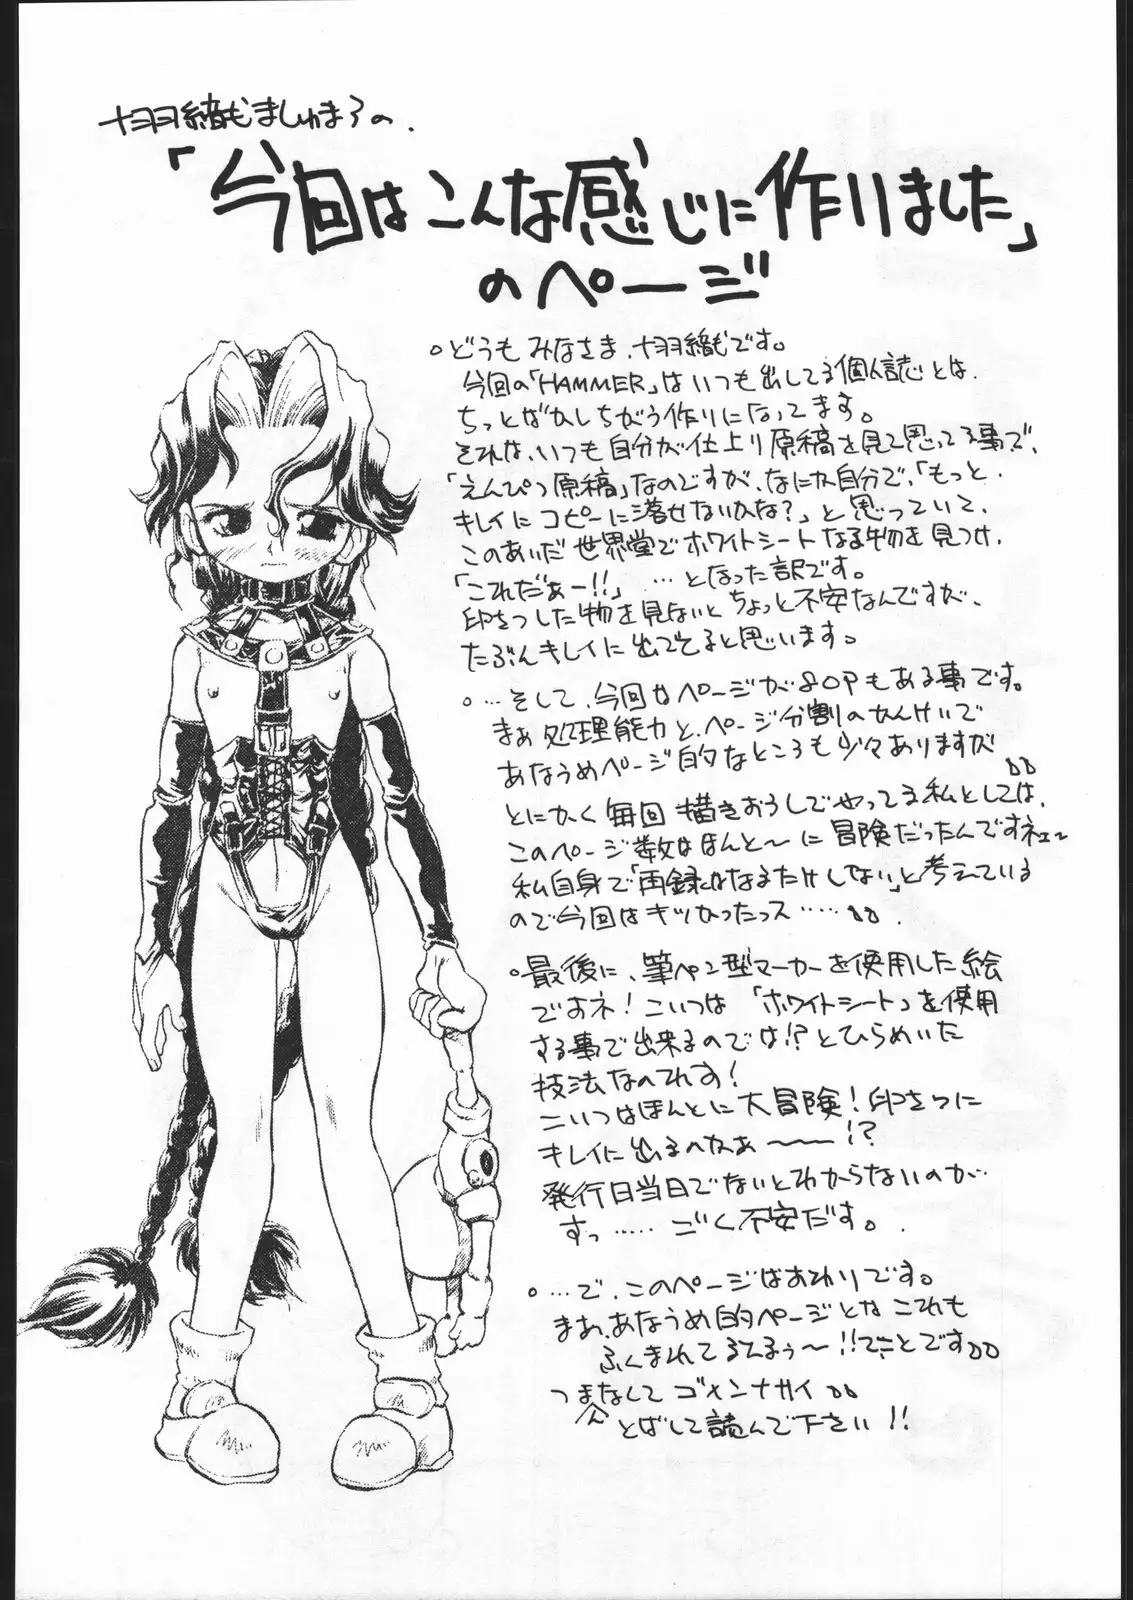 十羽織ましゅまろの、
「今回はこんな感じに作りました」
のページ
○どうもみなさま、十羽織です。
今回の「HAMMER」はいつも出してる個人誌とは、
ちっとばかしちがう作りになってます。
それは、いつも自分が仕上り原稿を見て思ってる事で、
「えんぴつ原稿」なのですが、なにか自分で、「もっと
キレイにコピーに落せないかな？」と思っていて、
このあいだ世界堂でホワイトシートなる物を見つけ、
「これだぁー!!」…となった訳です。
印さつした物を見ないとちょっと不安なんですが、
たぶんキレイに出てると思います。
○…そして、今回はページが80Pもある事です。
まぁ処理能力と、ページ分割のかんけいで
あなうめページ的なところも少々ありますが
とにかく毎回描きおろしでやってる私としては、
このページ数はほんと〜に冒険だったんですネェ〜
私自身で「再録はなるたけしない」と考えている
ので今回はキツかったっス……。
○最後に、筆ペン型マーカーを使用した絵
ですネ！こいつは「ホワイトシート」を使用
する事で出来るのでは!?とひらめいた
技法なのです！
こいつはほんとに大冒険！印さつに
キレイに出るのかなぁ〜〜!?
発行日当日でないとわからないのが…
すっ……ごく不安だす。
○…で、このページはおわりです。
まあ、あなうめ的ページとはこれも
ふくまれてるてるぅ〜!!てことです
つまなくてゴメンナサイ
ん
とばして読んで下さい!!